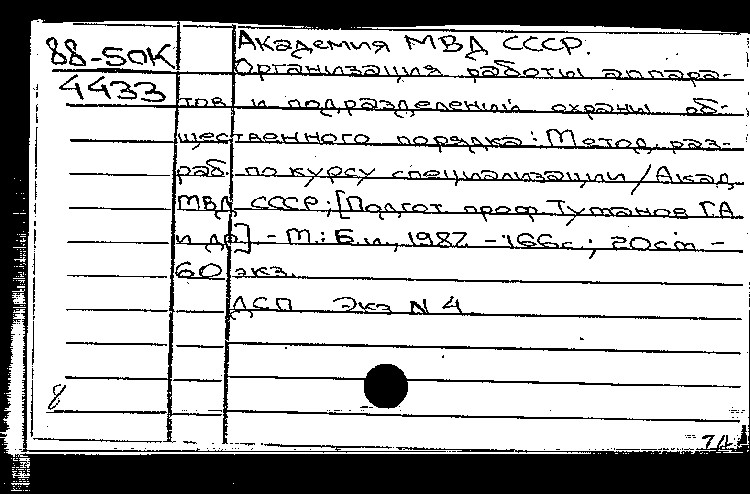 88-50К
4433
Академия МВД СССР.
Организация работы аппара-
тов и подразделений охраны об-
щественного порядка: Метод. раз-
раб. по курсу специализации / Акад.
МВД СССР; [Подгот. проф. Туманов Г.А.
и др.] - М.: Б.и., 1987. - 166с.; 20см. -
60 экз.
ДСП Экз N 4.
8